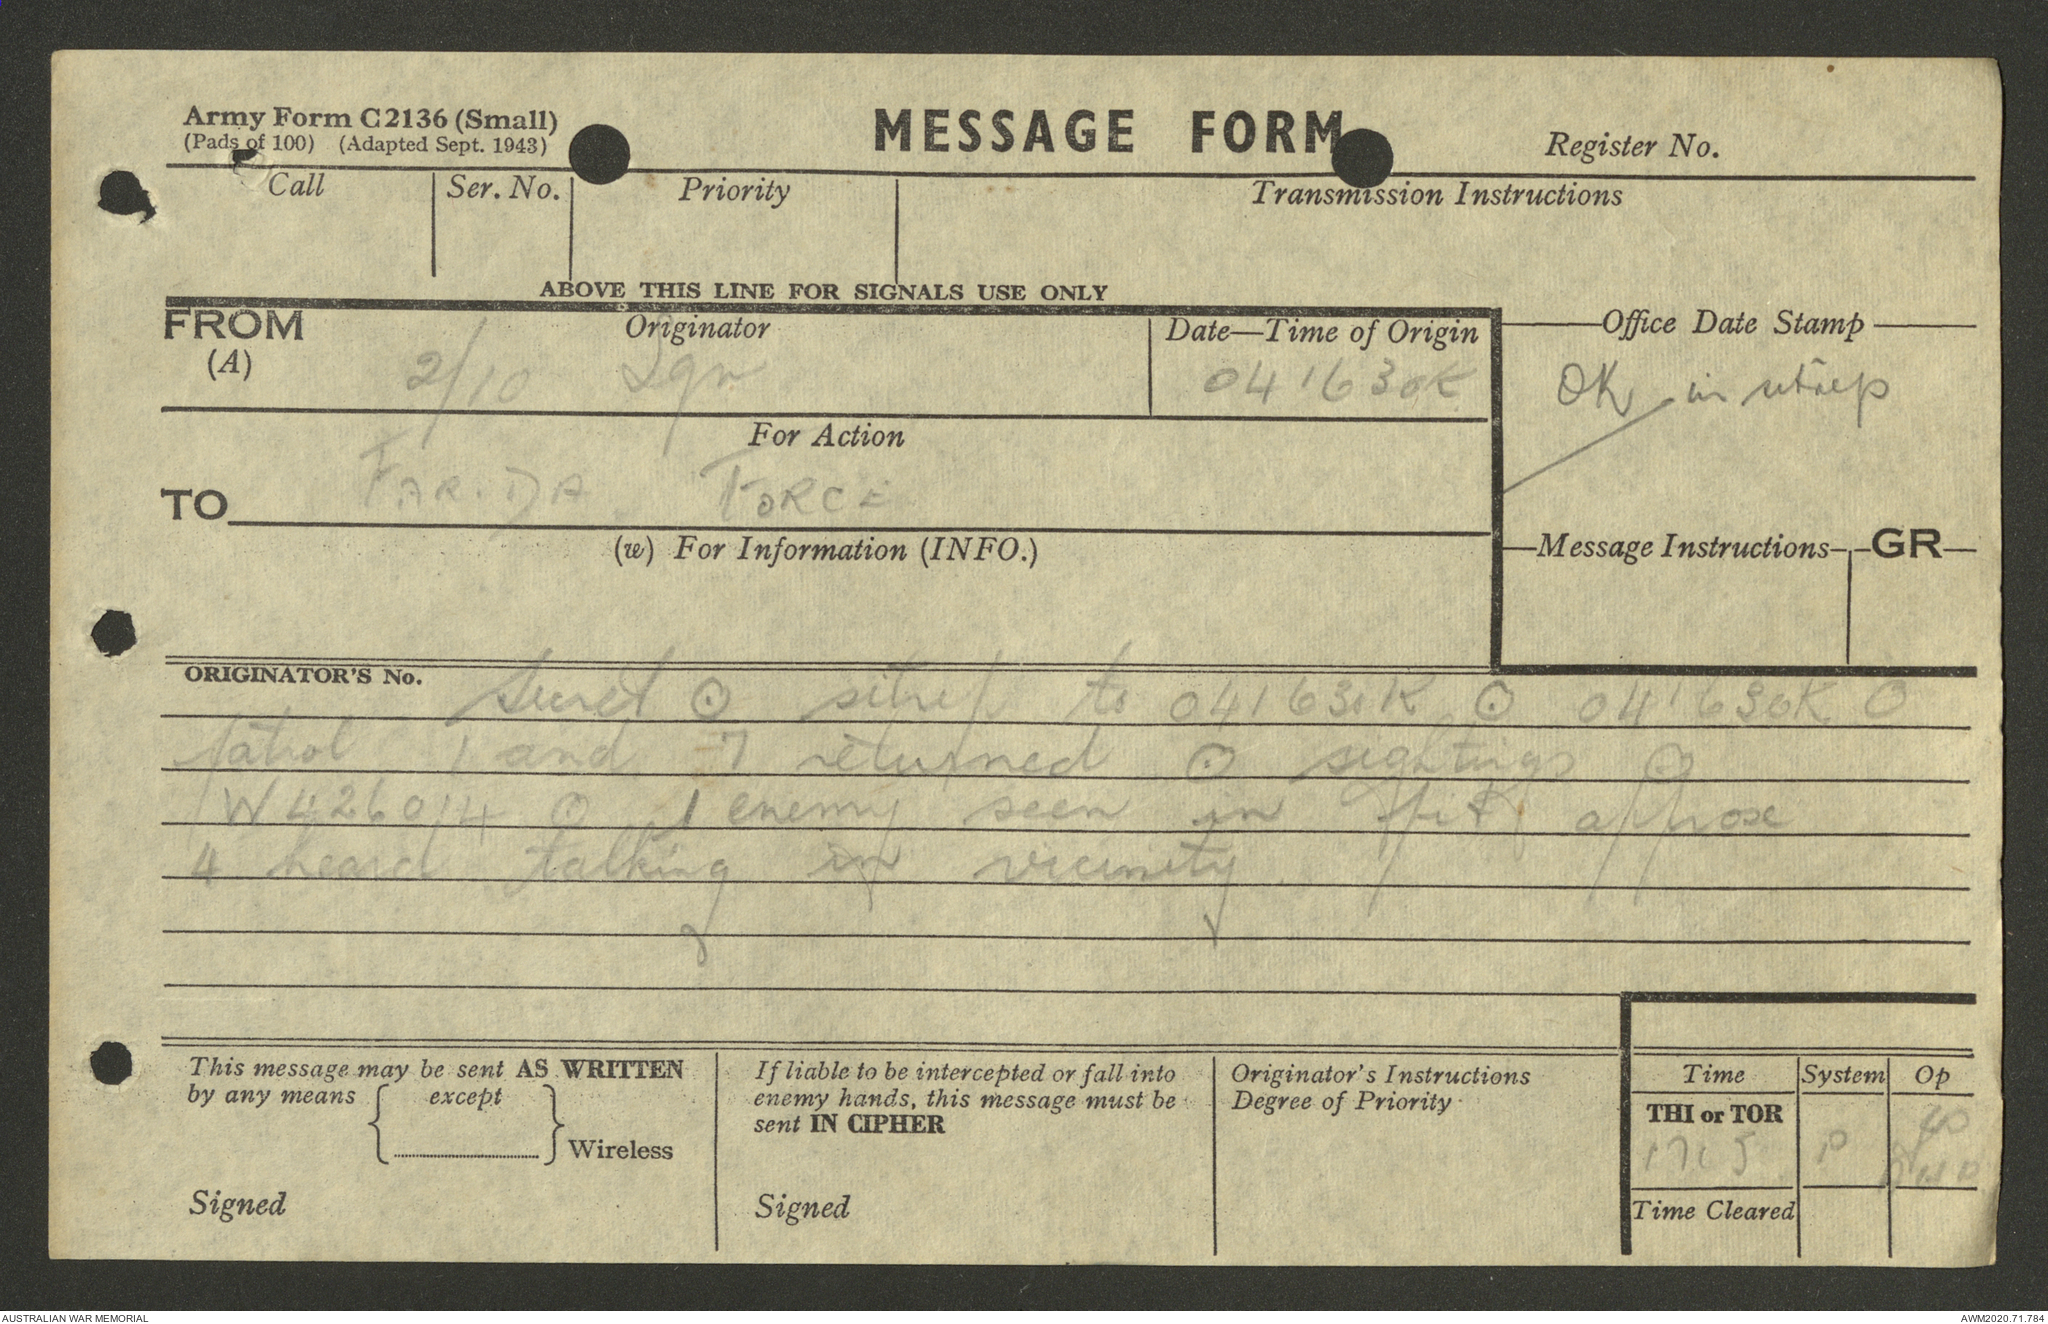 Army Form C2136 (Small)
(Pads of 100) (Adapted Sept. 1943)
MESSAGE FORM
Register No.
Call
Ser. No.
Priority
Transmission Instructions
ABOVE THIS LINE FOR SIGNALS USE ONLY
FROM
(A)
Originator
2/10 Sqn
Date—Time of Origin
041630K
Office Date Stamp
OK in sitrep
For Action
TO
FARIDA FORCE
(w) For Information (INFO.)
Message Instructions
GR
ORIGINATOR'S No.
Secret ⊙ sitrep to 041630K ⊙ 041630K ⊙
patrol 1 and 7 returned ⊙ sightings ⊙
W426014 ⊙ 1 enemy seen in approx
4 heard talking in vicinity
This message may be sent AS WRITTEN
by any means except
Wireless
Signed
If liable to be intercepted or fall into
enemy hands, this message must be
sent IN CIPHER
Signed
Originator's Instructions
Degree of Priority
Time
System
Op
THI or TOR
1715
P
Time Cleared
AUSTRALIAN WAR MEMORIAL
AWM2020.71.784